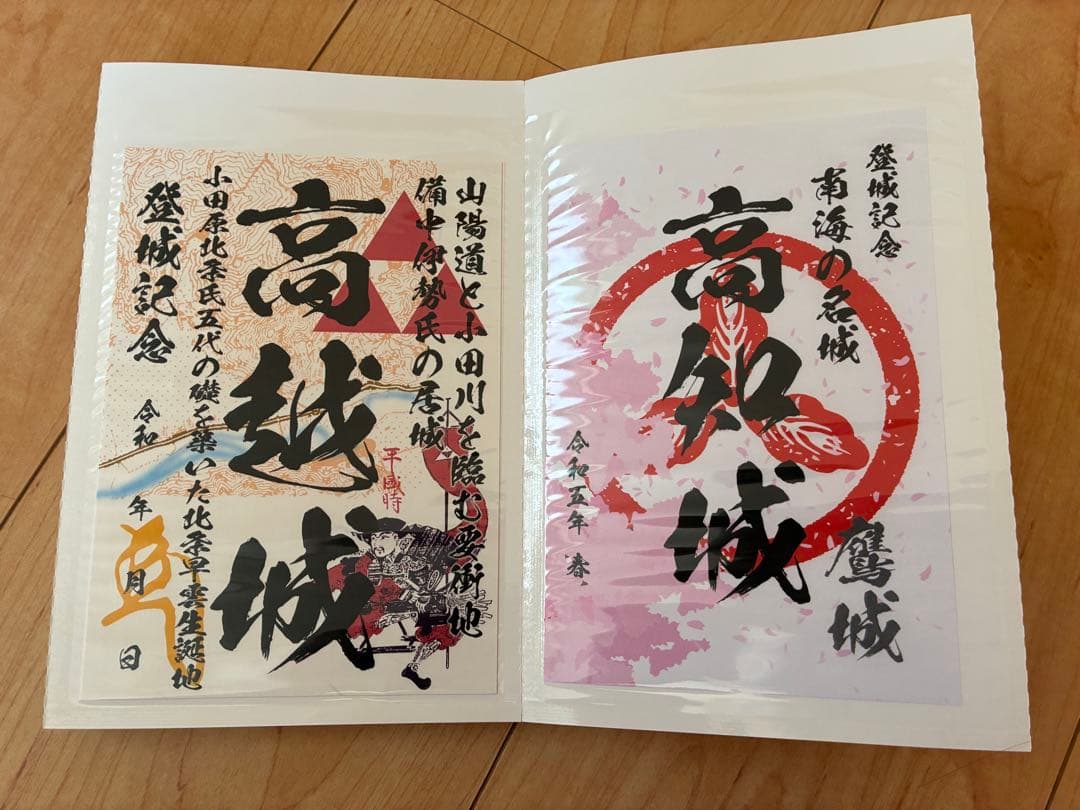 山陽道と小田川を臨む要衝地
備中伊勢氏の居城
高越城
平盛時
小田原北条氏五代の礎を築いた北条早雲生誕地
登城記念
令和 年 月 日
登城記念
南海の名城
高知城
鷹城
令和五年 春